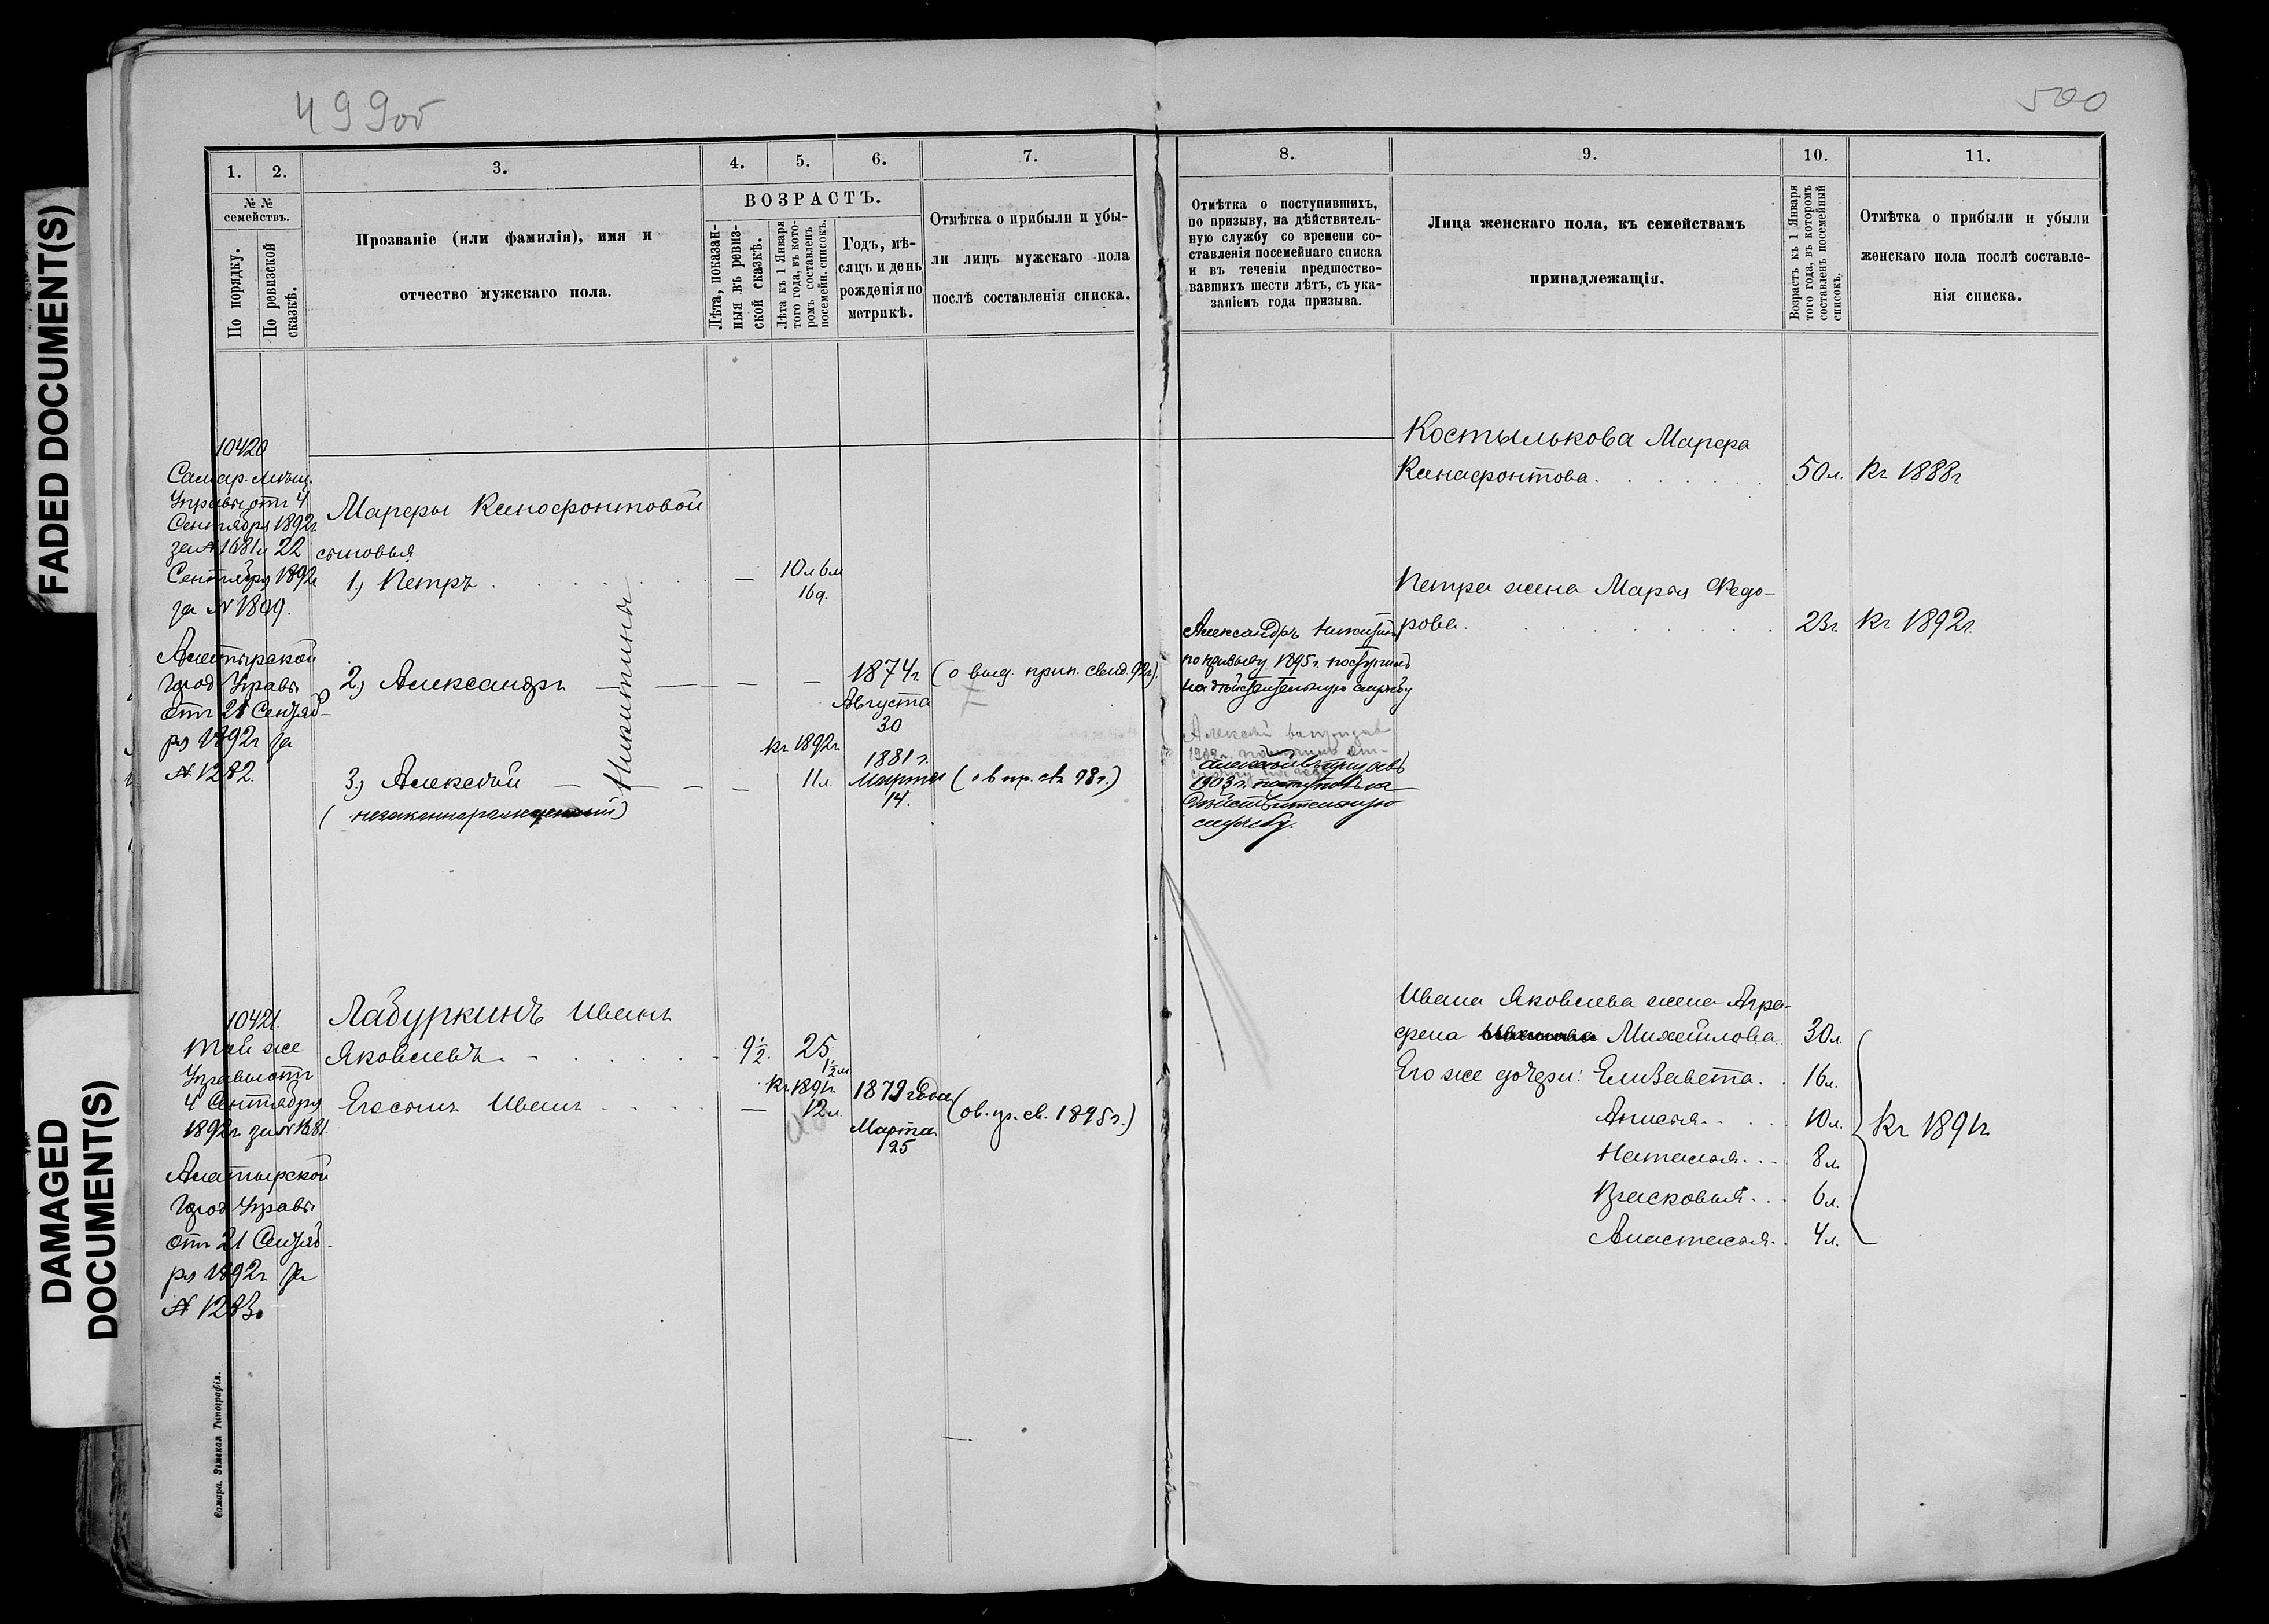 FADED DOCUMENT(S)
DAMAGED
DOCUMENT(S)
499об
500
1.
2.
3.
4.
5.
6.
7.
№ №
семействъ.
По порядку.
По ревизской
сказкѣ.
Прозваніе (или фамилія), имя и
отчество мужскаго пола.
ВОЗРАСТЪ.
Лѣта, показан-
ныя въ ревиз-
ской сказкѣ.
Лѣта къ 1 Января
того года, въ кото-
ромъ составленъ
посемейн. списокъ.
Годъ, мѣ-
сяцъ и день
рожденія по
метрикѣ.
Отмѣтка о прибыли и убы-
ли лицъ мужскаго пола
послѣ составленія списка.
8.
9.
10.
11.
Отмѣтка о поступившихъ,
по призыву, на дѣйствитель-
ную службу со времени со-
ставленія посемейнаго списка
и въ теченіи предшество-
вавшихъ шести лѣтъ, съ ука-
заніемъ года призыва.
Лица женскаго пола, къ семействамъ
принадлежащія.
Возрастъ къ 1 Января
того года, въ которомъ
составленъ посемейный
списокъ.
Отмѣтка о прибыли и убыли
женскаго пола послѣ составле-
нія списка.
10420
Самар. мѣщ.
Управы отъ 4
Сентября 1892г
за № 1681 и 22
Сентября 1892г
за № 1809.
Алатырской
Город Управы
отъ 21 Сентяб-
ря 1892г за
№ 1282.
Марфы Кинофонтовой
сыновья
1) Петръ
10л 6м
16д.
2) Александръ
1874г
Августа
30
(о выд. прип. свид. 92г).
3) Алексѣй
(незаконнорожденный)
Никитины
къ 1892г
11л.
1881г.
Марта
14.
(о в пр. св. 98г.)
Александръ Никитинъ
по призыву 1895г. поступилъ
на дѣйствительную службу
Алексѣй въ призывъ
1903г. поступилъ на
дѣйствительную
службу.
Костылькова Марфа
Кинафонтова.
50л.
Къ 1888г
Петра жена Марья Федо-
рова.
23г
Къ 1892г.
10421.
Той же
Управы отъ
4 Сентября
1892г за № 1681
Алатырской
Город Управы
отъ 21 Сентяб-
ря 1892г за
№ 1283.
Лабуркинъ Иванъ
Яковлевъ.
9½.
25
1½м
Его сынъ Иванъ
къ 1891г
12л.
1879 года
Марта
25
(о в. пр. св. 1895г.)
Ивана Яковлева жена Агра-
фена Михайлова.
30л
Его же дочери: Елизавета.
16л.
Анисья.
10л.
Наталья.
8л
Прасковья.
6л.
Анастасья.
4л.
Къ 1891г
Самара. Земская Типографія.